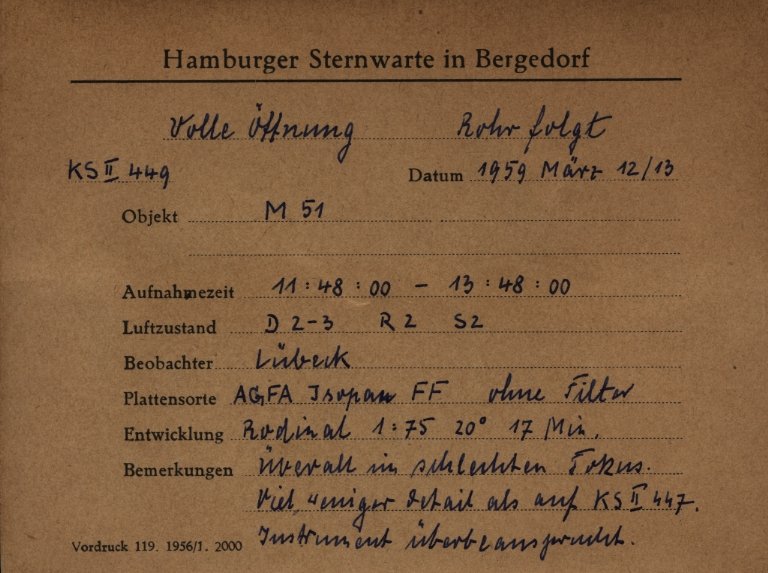 Hamburger Sternwarte in Bergedorf
Volle Öffnung Rohr folgt
KS II 449 Datum 1959 März 12/13
Objekt M 51
Aufnahmezeit 11:48:00 – 13:48:00
Luftzustand D 2-3 R 2 S 2
Beobachter Lübeck
Plattensorte AGFA Isopan FF ohne Filter
Entwicklung Rodinal 1:75 20° 17 Min.
Bemerkungen Überall im schlechten Fokus.
Viel weniger Detail als auf KS II 447.
Instrument überbeansprucht.
Vordruck 119. 1956/1. 2000